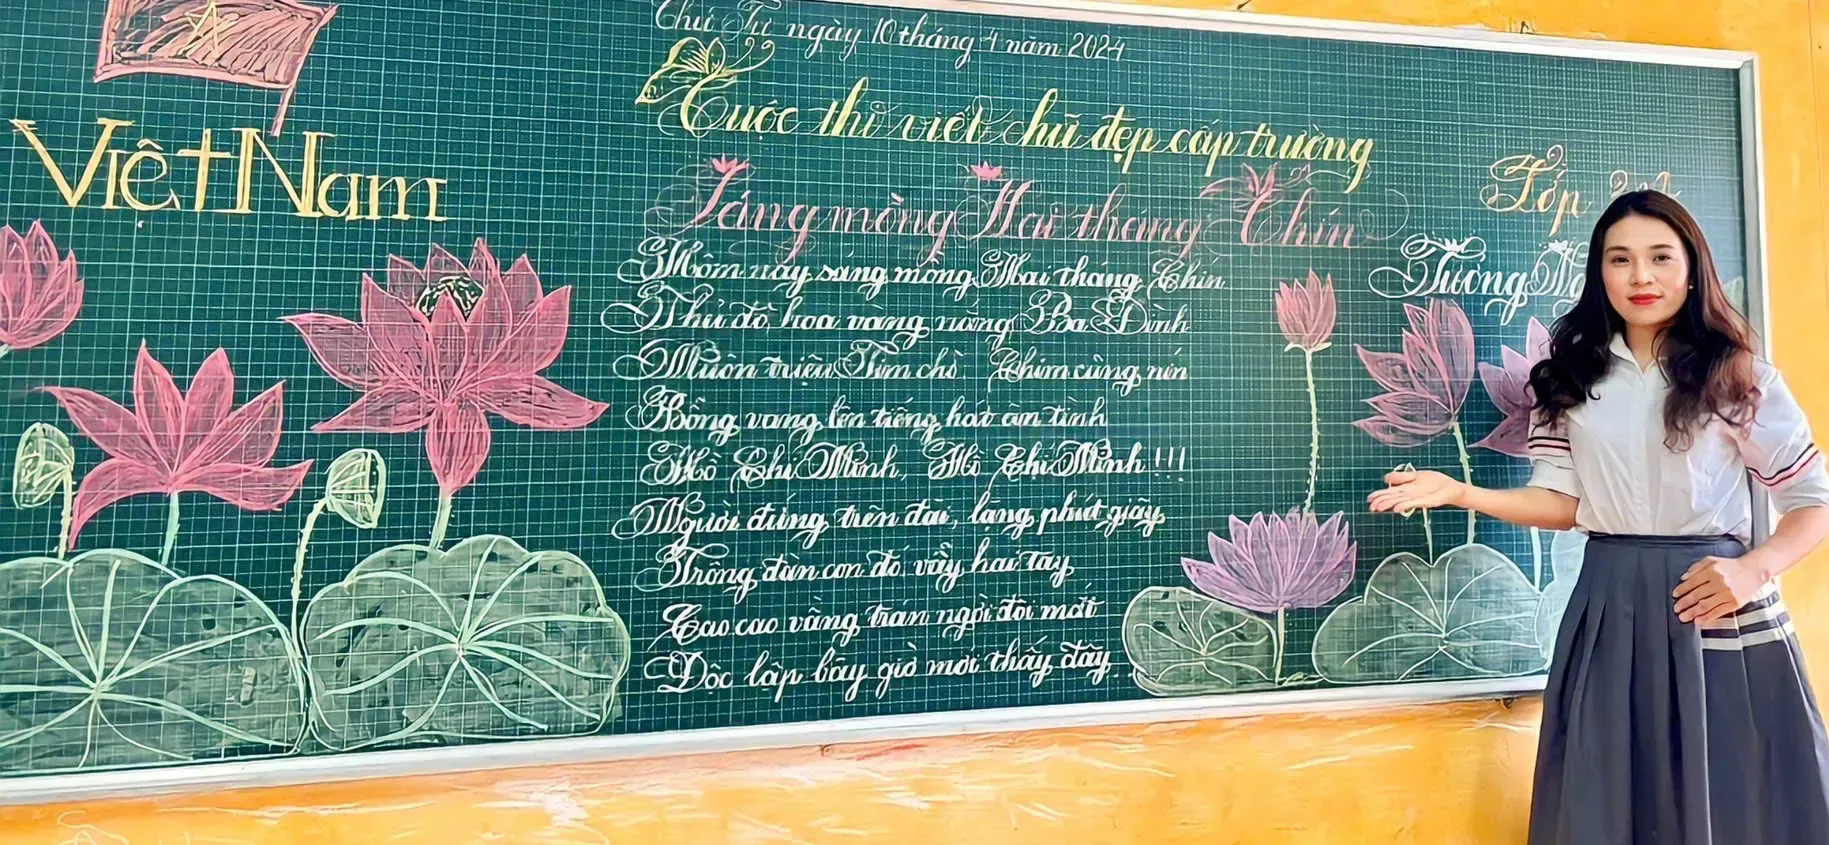 Thứ Tư ngày 10 tháng 4 năm 2024
Việt Nam
Cuộc thi viết chữ đẹp cấp trường
Lớp
Sáng mồng Hai tháng Chín
Tường
Hôm nay sáng mồng Hai tháng Chín
Thủ đô hoa vàng nắng Ba Đình
Muôn triệu Tim chờ Chim cũng nín
Bỗng vang lên tiếng hát ân tình
Hồ Chí Minh, Hồ Chí Minh!!!
Người đứng trên đài, lặng phút giây
Trông đàn con đó, vẫy hai tay
Cao cao vầng trán ngời đôi mắt
Độc lập bây giờ mới thấy đây...